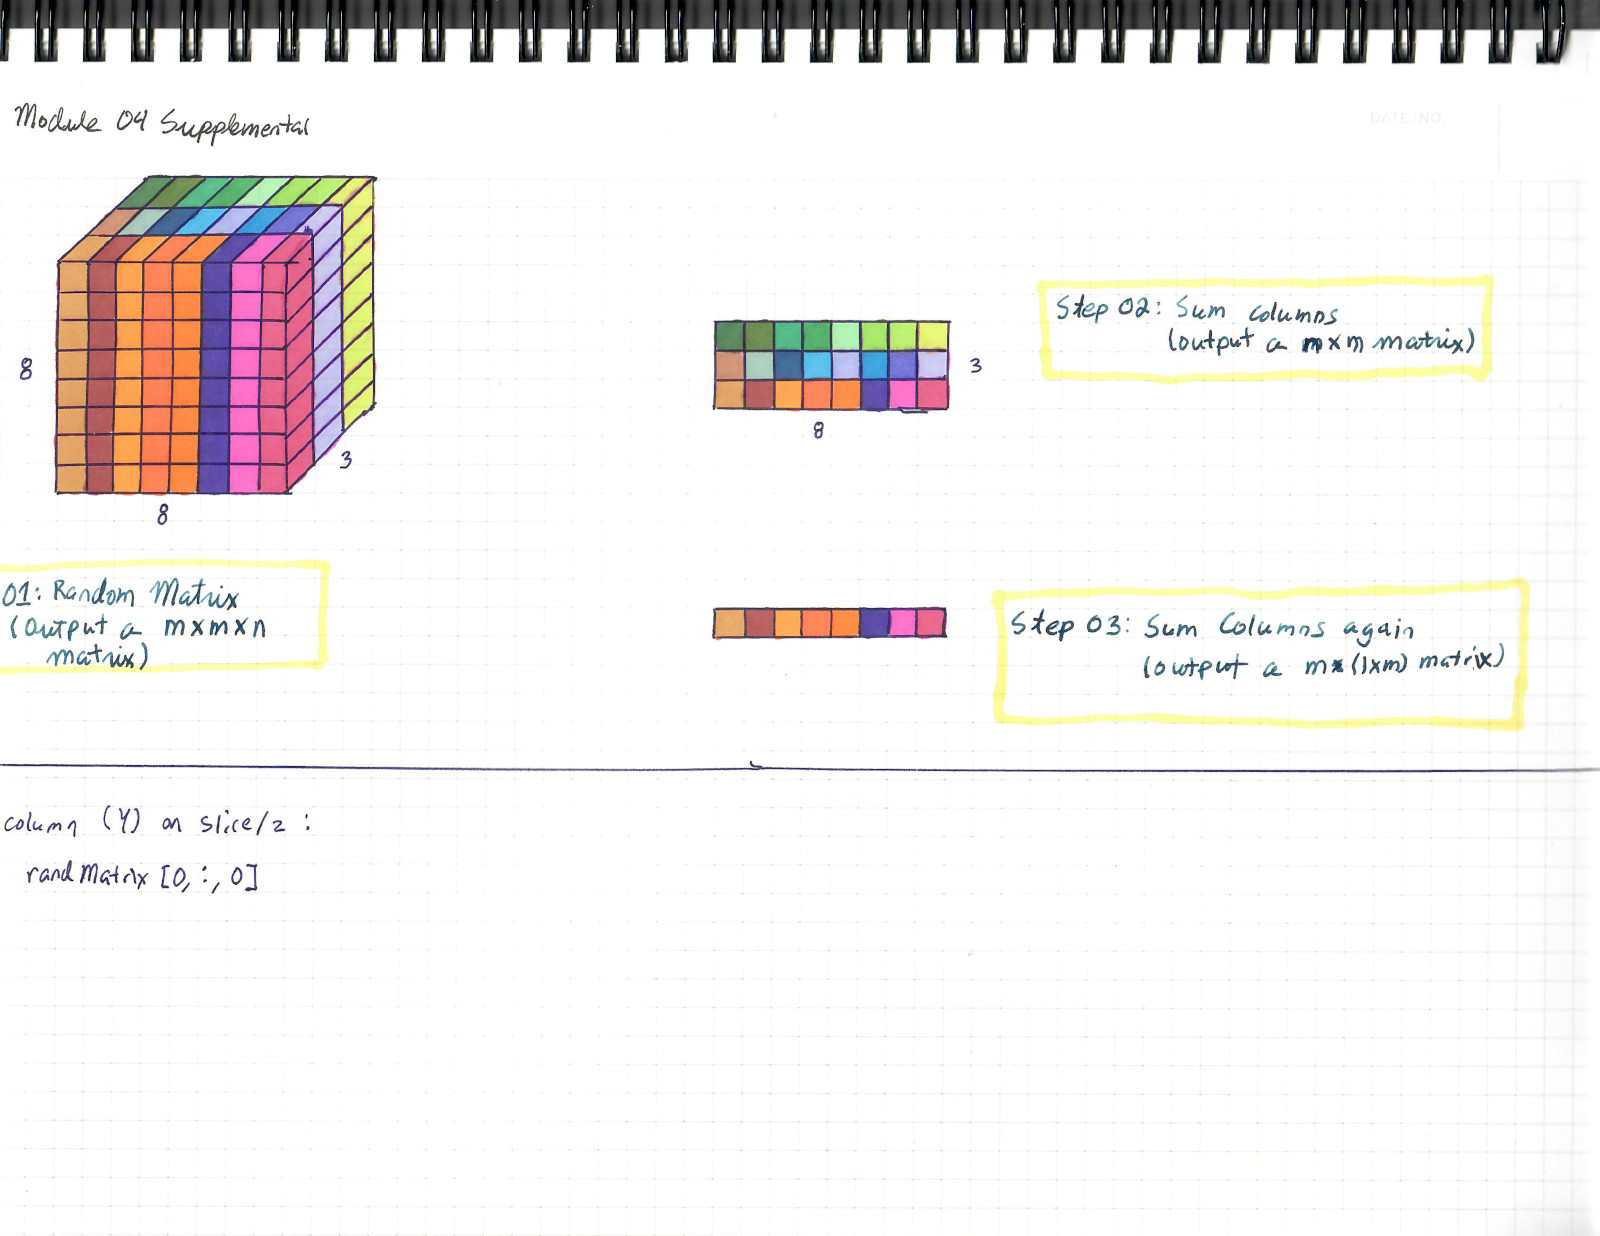 Module 04 Supplemental
DATE/NO.
8
3
8
01: Random Matrix
(Output a m×m×n
matrix)
3
8
Step 02: Sum columns
(output a n×m matrix)
Step 03: Sum Columns again
(output a m×(1×m) matrix)
column (Y) on slice/z :
randMatrix [0, :, 0]